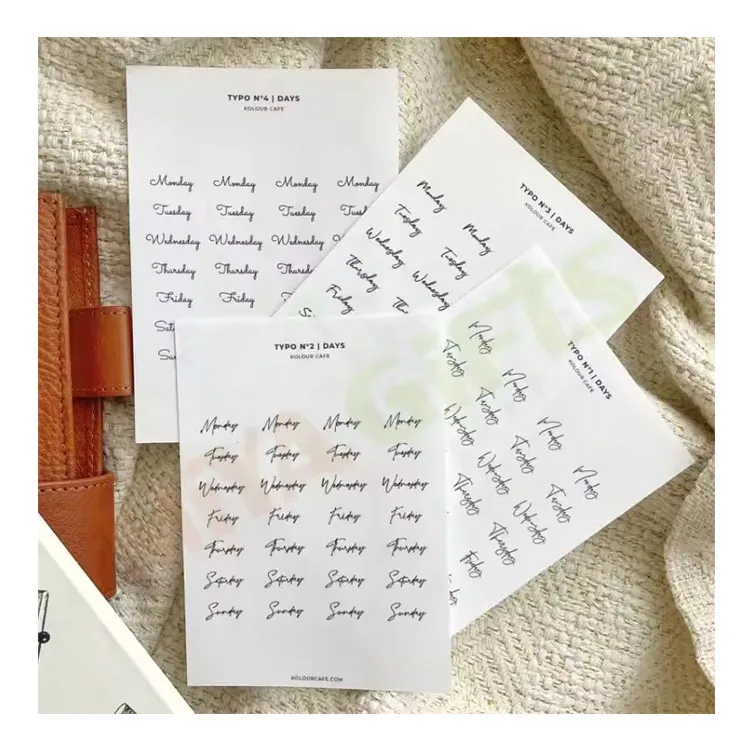 TYPO Nº4 | DAYS
KOLOUR CAFE
Monday Monday Monday Monday
Tuesday Tuesday Tuesday
Wednesday Wednesday Wednesday
Thursday Thursday
Friday Friday
TYPO Nº3 | DAYS
KOLOUR CAFE
Monday Monday
Tuesday Tuesday
Wednesday Wednesday
Thursday
Friday
TYPO Nº2 | DAYS
KOLOUR CAFE
Monday Monday Monday Monday
Tuesday Tuesday Tuesday Tuesday
Wednesday Wednesday Wednesday Wednesday
Friday Friday Friday Friday
Thursday Thursday Thursday Thursday
Saturday Saturday Saturday Saturday
Sunday Sunday Sunday Sunday
KOLOURCAFE.COM
TYPO Nº1 | DAYS
KOLOUR CAFE
Monday Monday Monday Monday
Tuesday Tuesday Tuesday Tuesday
Wednesday Wednesday Wednesday
Thursday Thursday
Friday
GIFTS